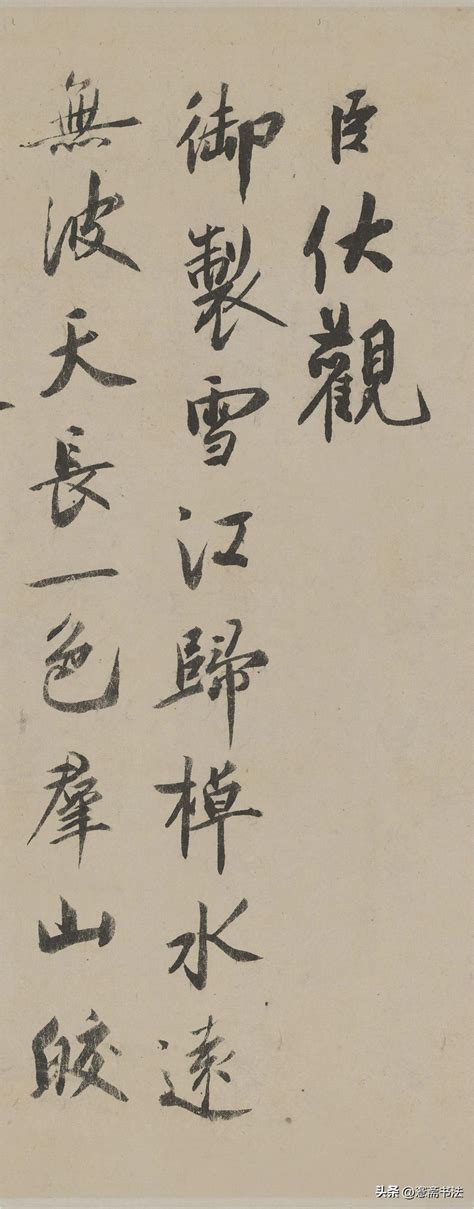 臣伏觀
御製雪江歸棹水遠
無波天長一色羣山皎
头条@憲斋书法